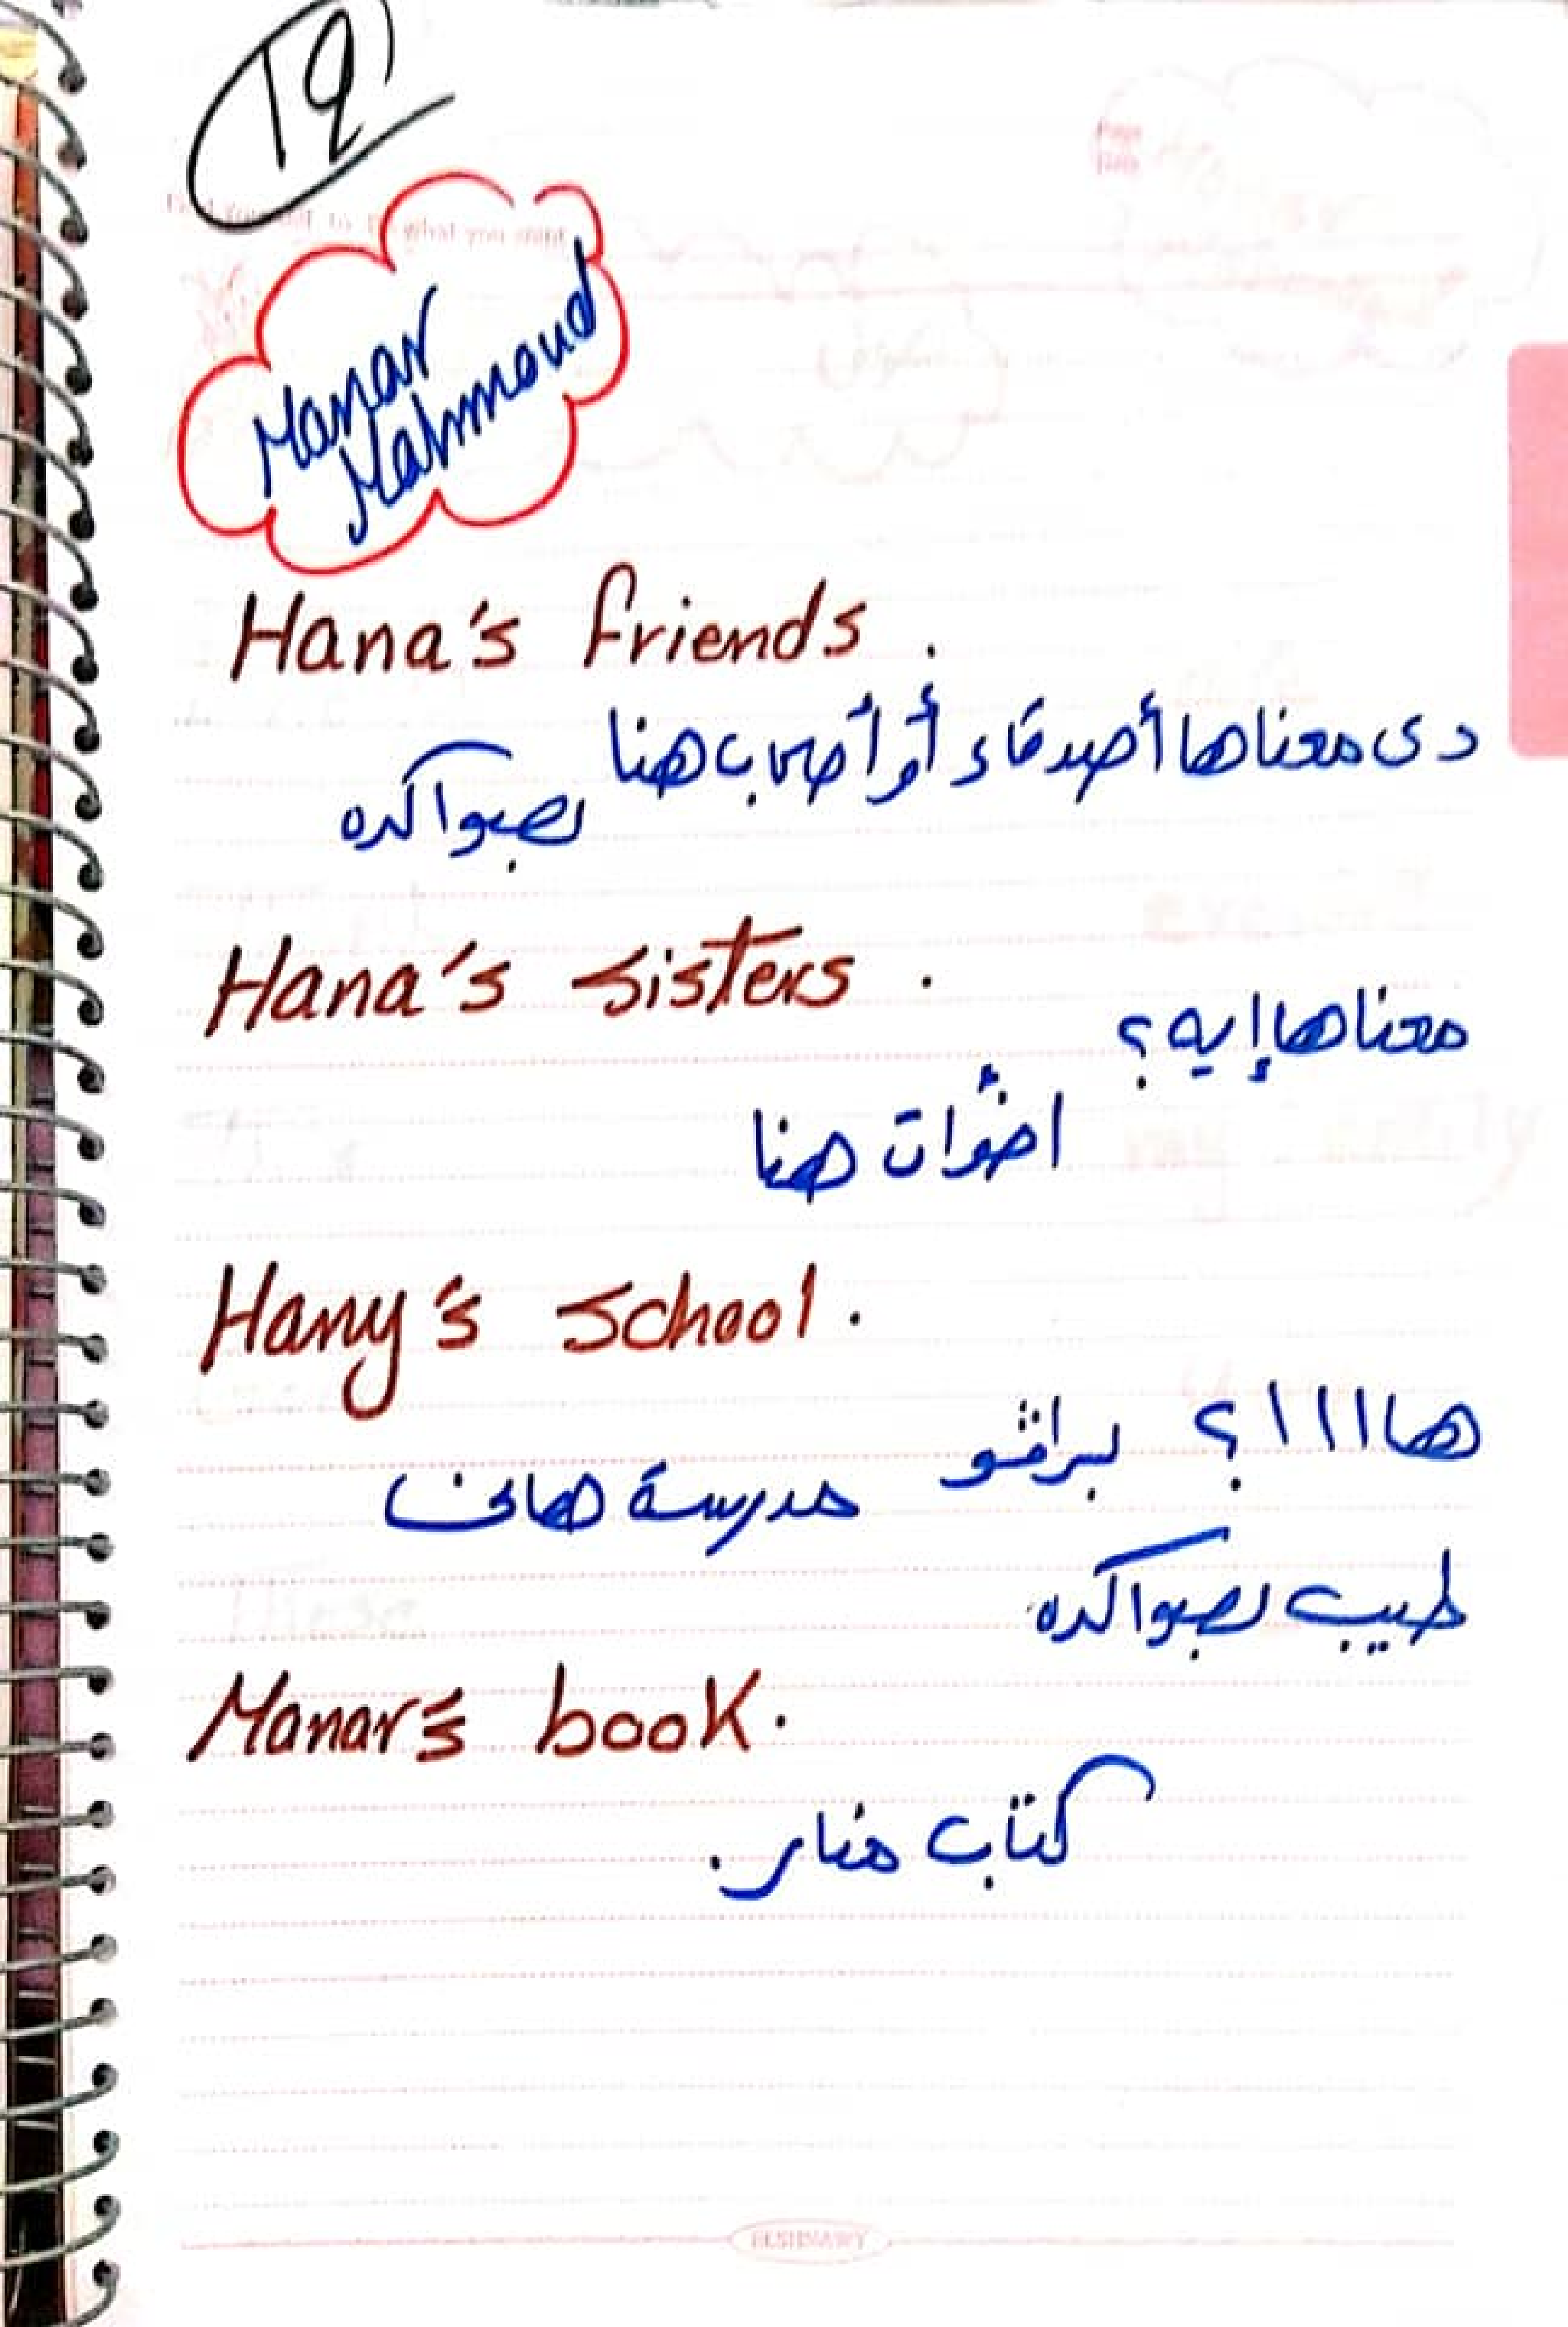 19
Manar
Mahmoud
Hana's friends.
دى معناها أصدقاء أو أصحاب هنا
بصوا كده
Hana's sisters.
معناها إيه؟
اخوات هنا
Hany's school.
هاااا؟ برافو
مدرسة هانى
طيب بصوا كده
Manar's book.
كتاب منار.
ELSHNAWY